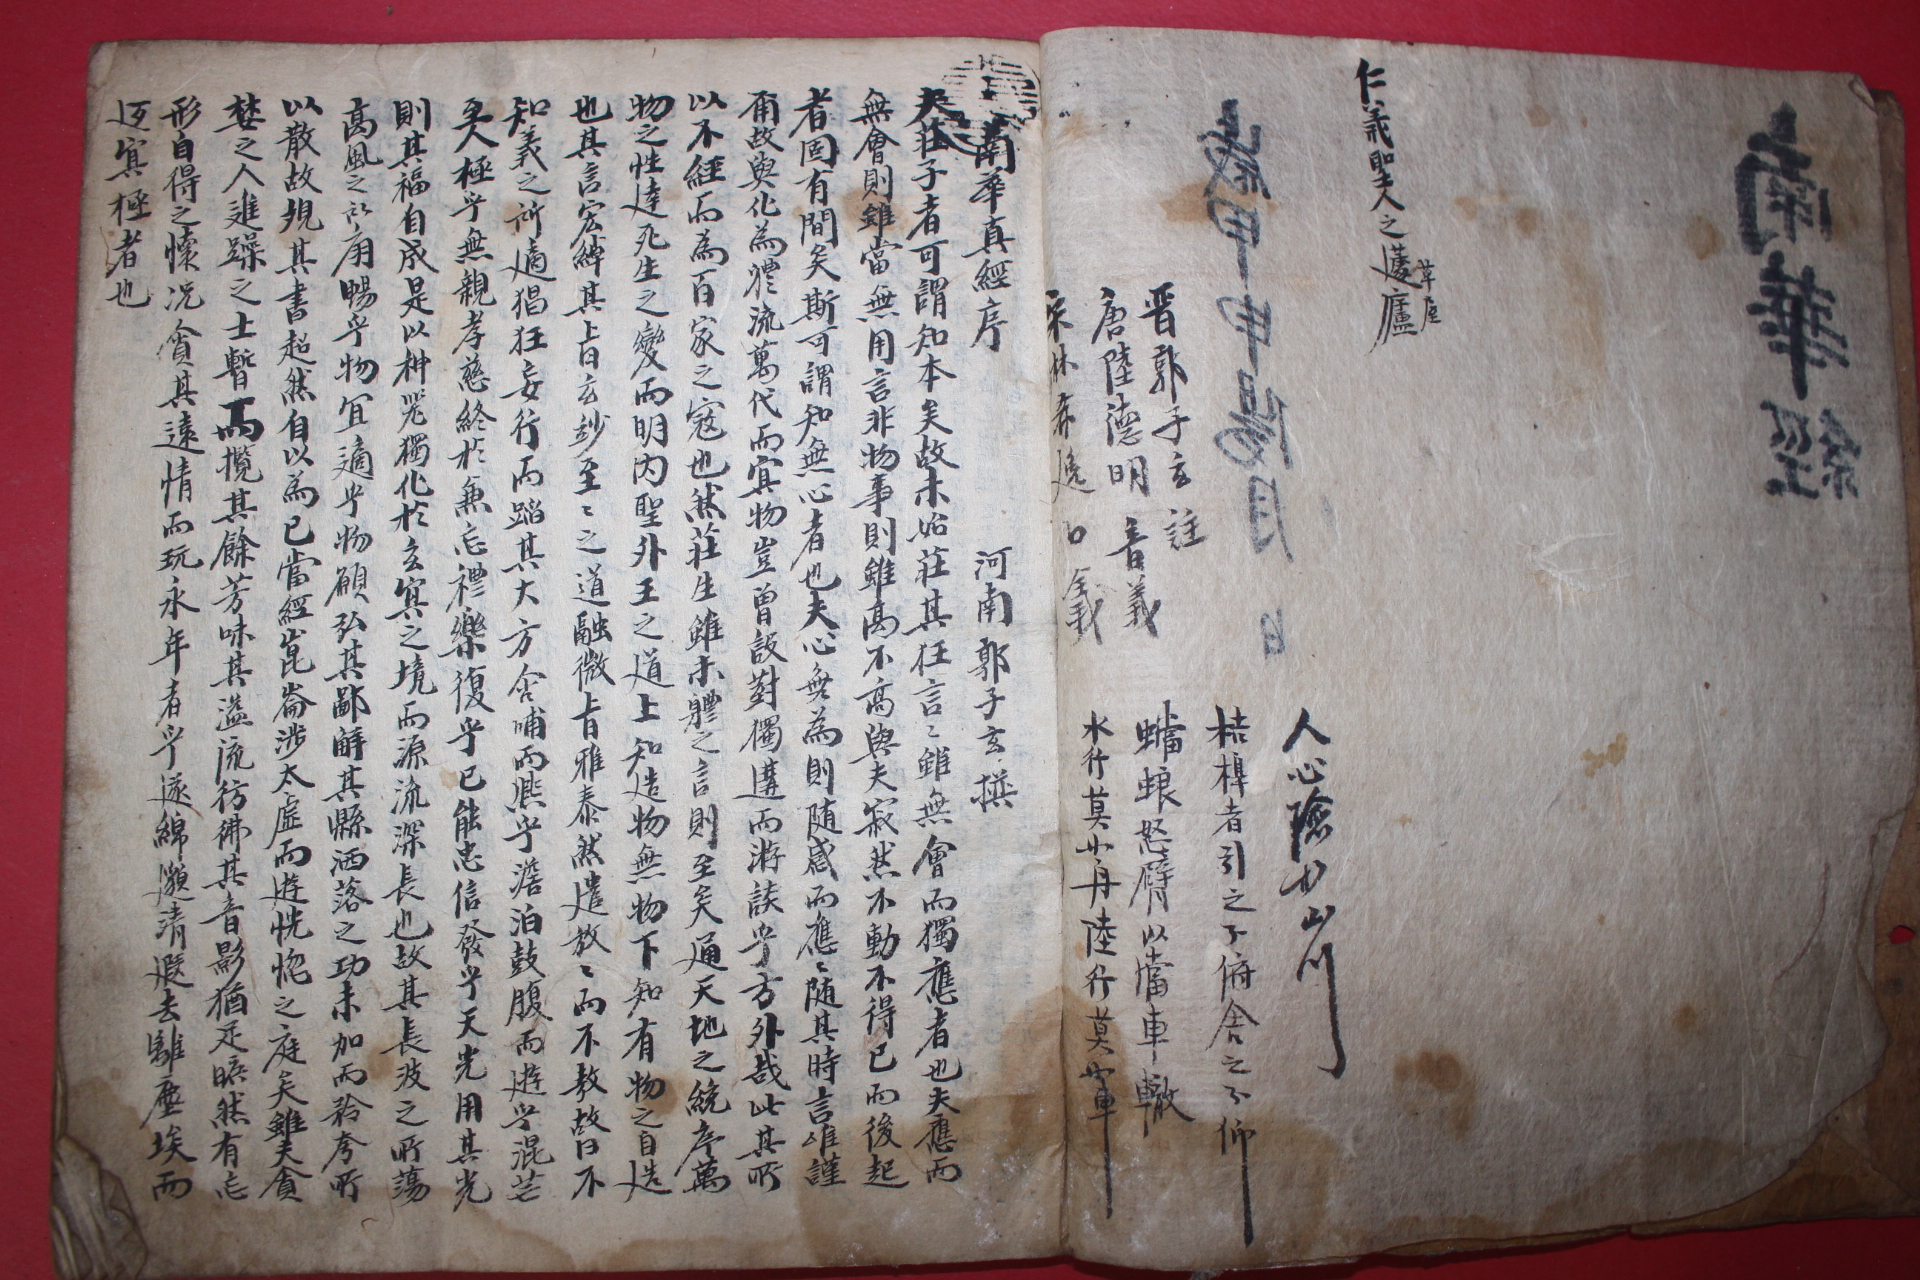 南華經
仁義聖人之蘧廬
草屋
人心險於山川
桔槹者引之不俯舍之不仰
螗蜋怒臂以當車轍
水行莫如舟陸行莫如車
晋郭子玄註
唐陸德明音義
宋林希逸口義
南華真經序
河南郭子玄撰
夫莊子者可謂知本矣故未始莊其狂言〻雖無會而獨應者也夫應而
無會則雖當無用言非物事則雖高不高與夫寂然不動不得已而後起
者固有間矣斯可謂知無心者也夫心無為則随感而應〻随其時言唯謹
甭故與化為軆流萬代而冥物豈曾設對獨遘而游談乎方外哉此其所
以不經而為百家之寇也然莊生雖未軆之言則至矣通天地之統序萬
物之性達死生之變而明内聖外王之道上知造物無物下知有物之自造
也其言宏綽其㫖玄妙至〻之道融微㫖雅泰然遣放〻而不敖故曰不
知義之所適猖狂妄行而蹈其大方含哺而熈乎澹泊鼓腹而遊乎混芒
至人極乎無親孝慈終於兼忘禮樂復乎已能忠信發乎天光用其光
則其福自成是以神器獨化於玄冥之境而源流深長也故其長波之所蕩
高風之所扇暢乎物宜適乎物願弘其鄙解其縣洒落之功未加而矜夸所
以散故覌其書超然自以為已當經崑崙涉太虚而遊恍惚之庭矣雖夫貪
婪之人進躁之士暫而攬其餘芳味其溢流彷彿其音影猶足曠然有忘
形自得之懷况貪其遠情而玩永年者乎遂綿邈清遐去離塵埃而
返冥極者也